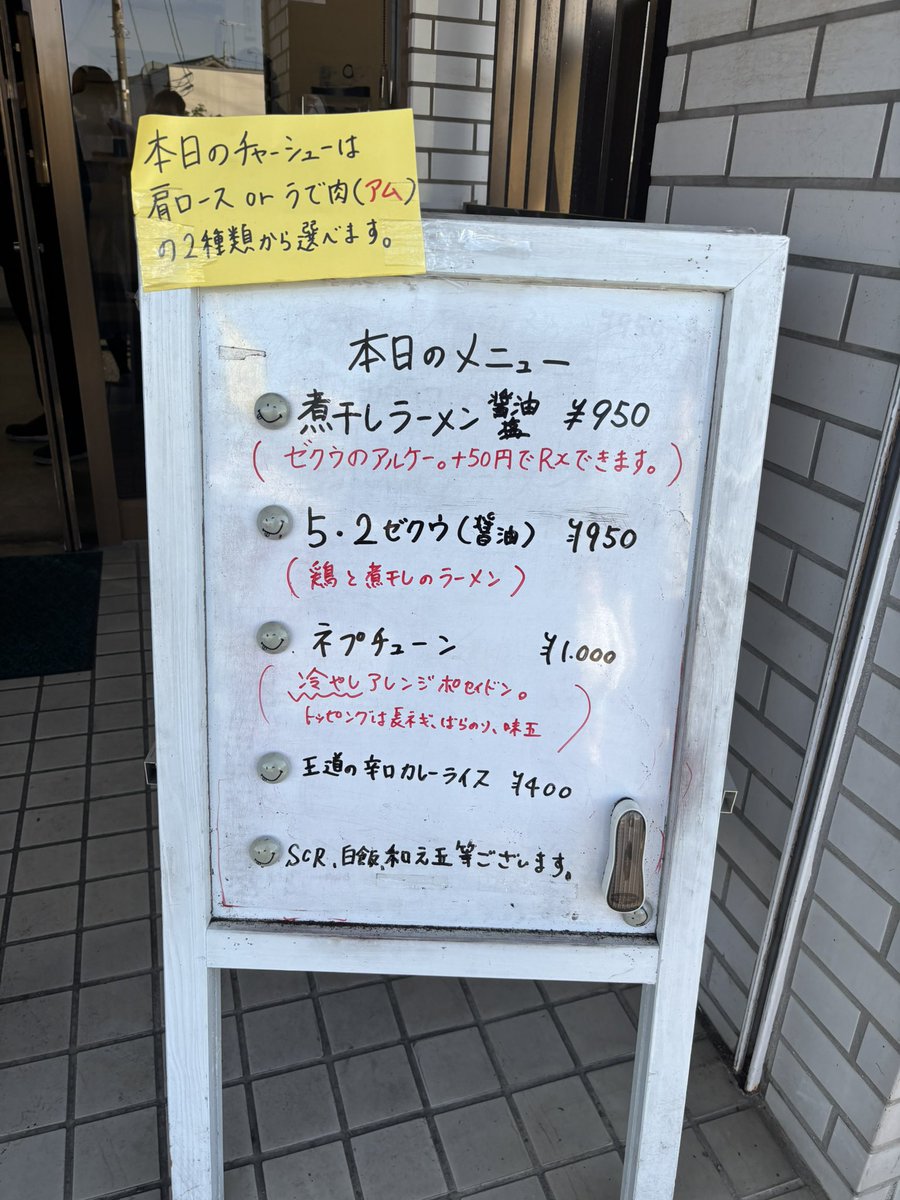 本日のチャーシューは
肩ロース or うで肉(アム)
の2種類から選べます。
本日のメニュー
煮干しラーメン 醤油 塩 ¥950
(ゼクウのアルケー。+50円でRXできます。)
5.2ゼクウ(醤油) ¥950
(鶏と煮干しのラーメン)
ネプチューン ¥1.000
(冷やしアレンジポセイドン。
トッピングは長ネギ、ばらのり、味玉)
王道の辛口カレーライス ¥400
SCR、白飯、和え玉等ございます。